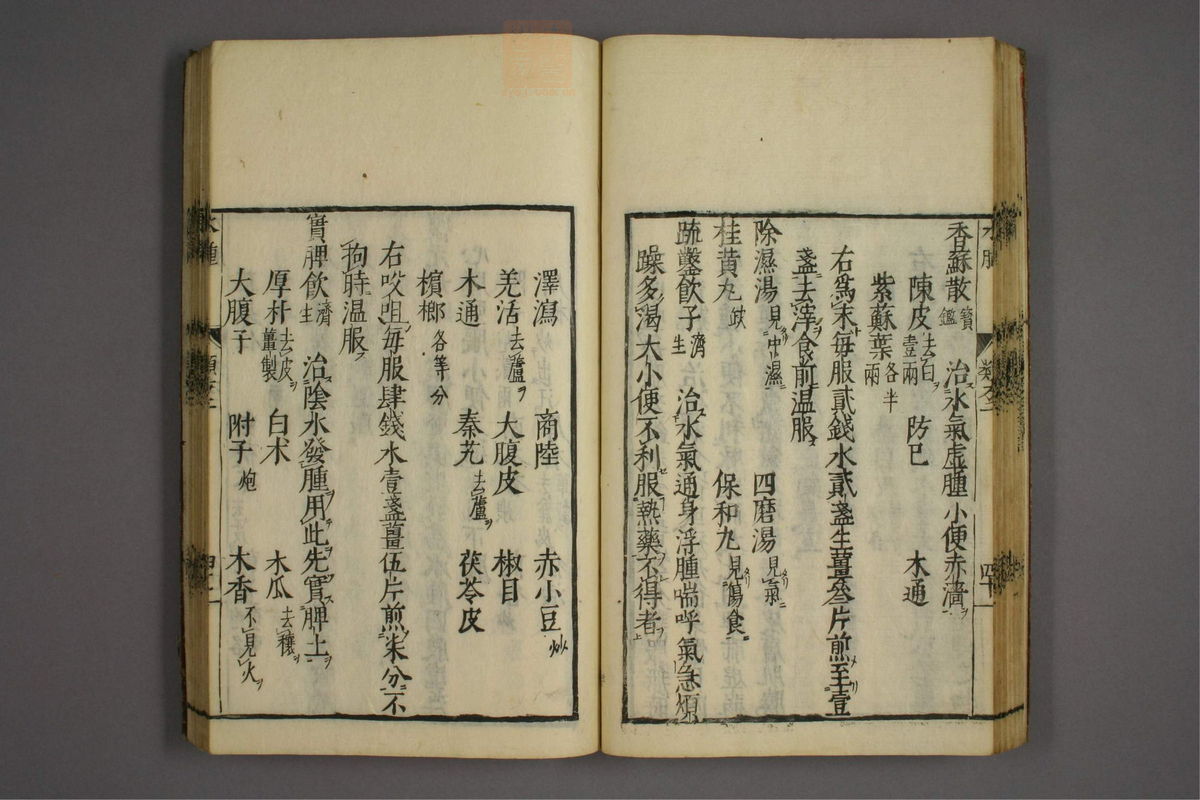 香蘇散 寶鑑 治水氣虛腫小便赤濇
陳皮 去白壹兩 防已 木通
紫蘇葉 各半兩
右爲末每服貳錢水貳盞生薑叄片煎至壹
盞去滓食前温服
除濕湯 見中濕 四磨湯 見氣
桂黄丸 保和丸 見傷食
疏鑿飲子 濟生 治水氣通身浮腫喘呼氣急煩
躁多渴大小便不利服熱藥不得者
澤瀉 商陸 赤小豆 炒
羌活 去蘆 大腹皮 椒目
木通 秦艽 去蘆 茯苓皮
檳榔 各等分
右㕮咀每服肆錢水壹盞薑伍片煎柒分不
拘時温服
實脾飲 濟生 治陰水發腫用此先實脾土
厚朴 去皮薑製 白术 木瓜 去穰
大腹子 附子 炮 木香 不見火